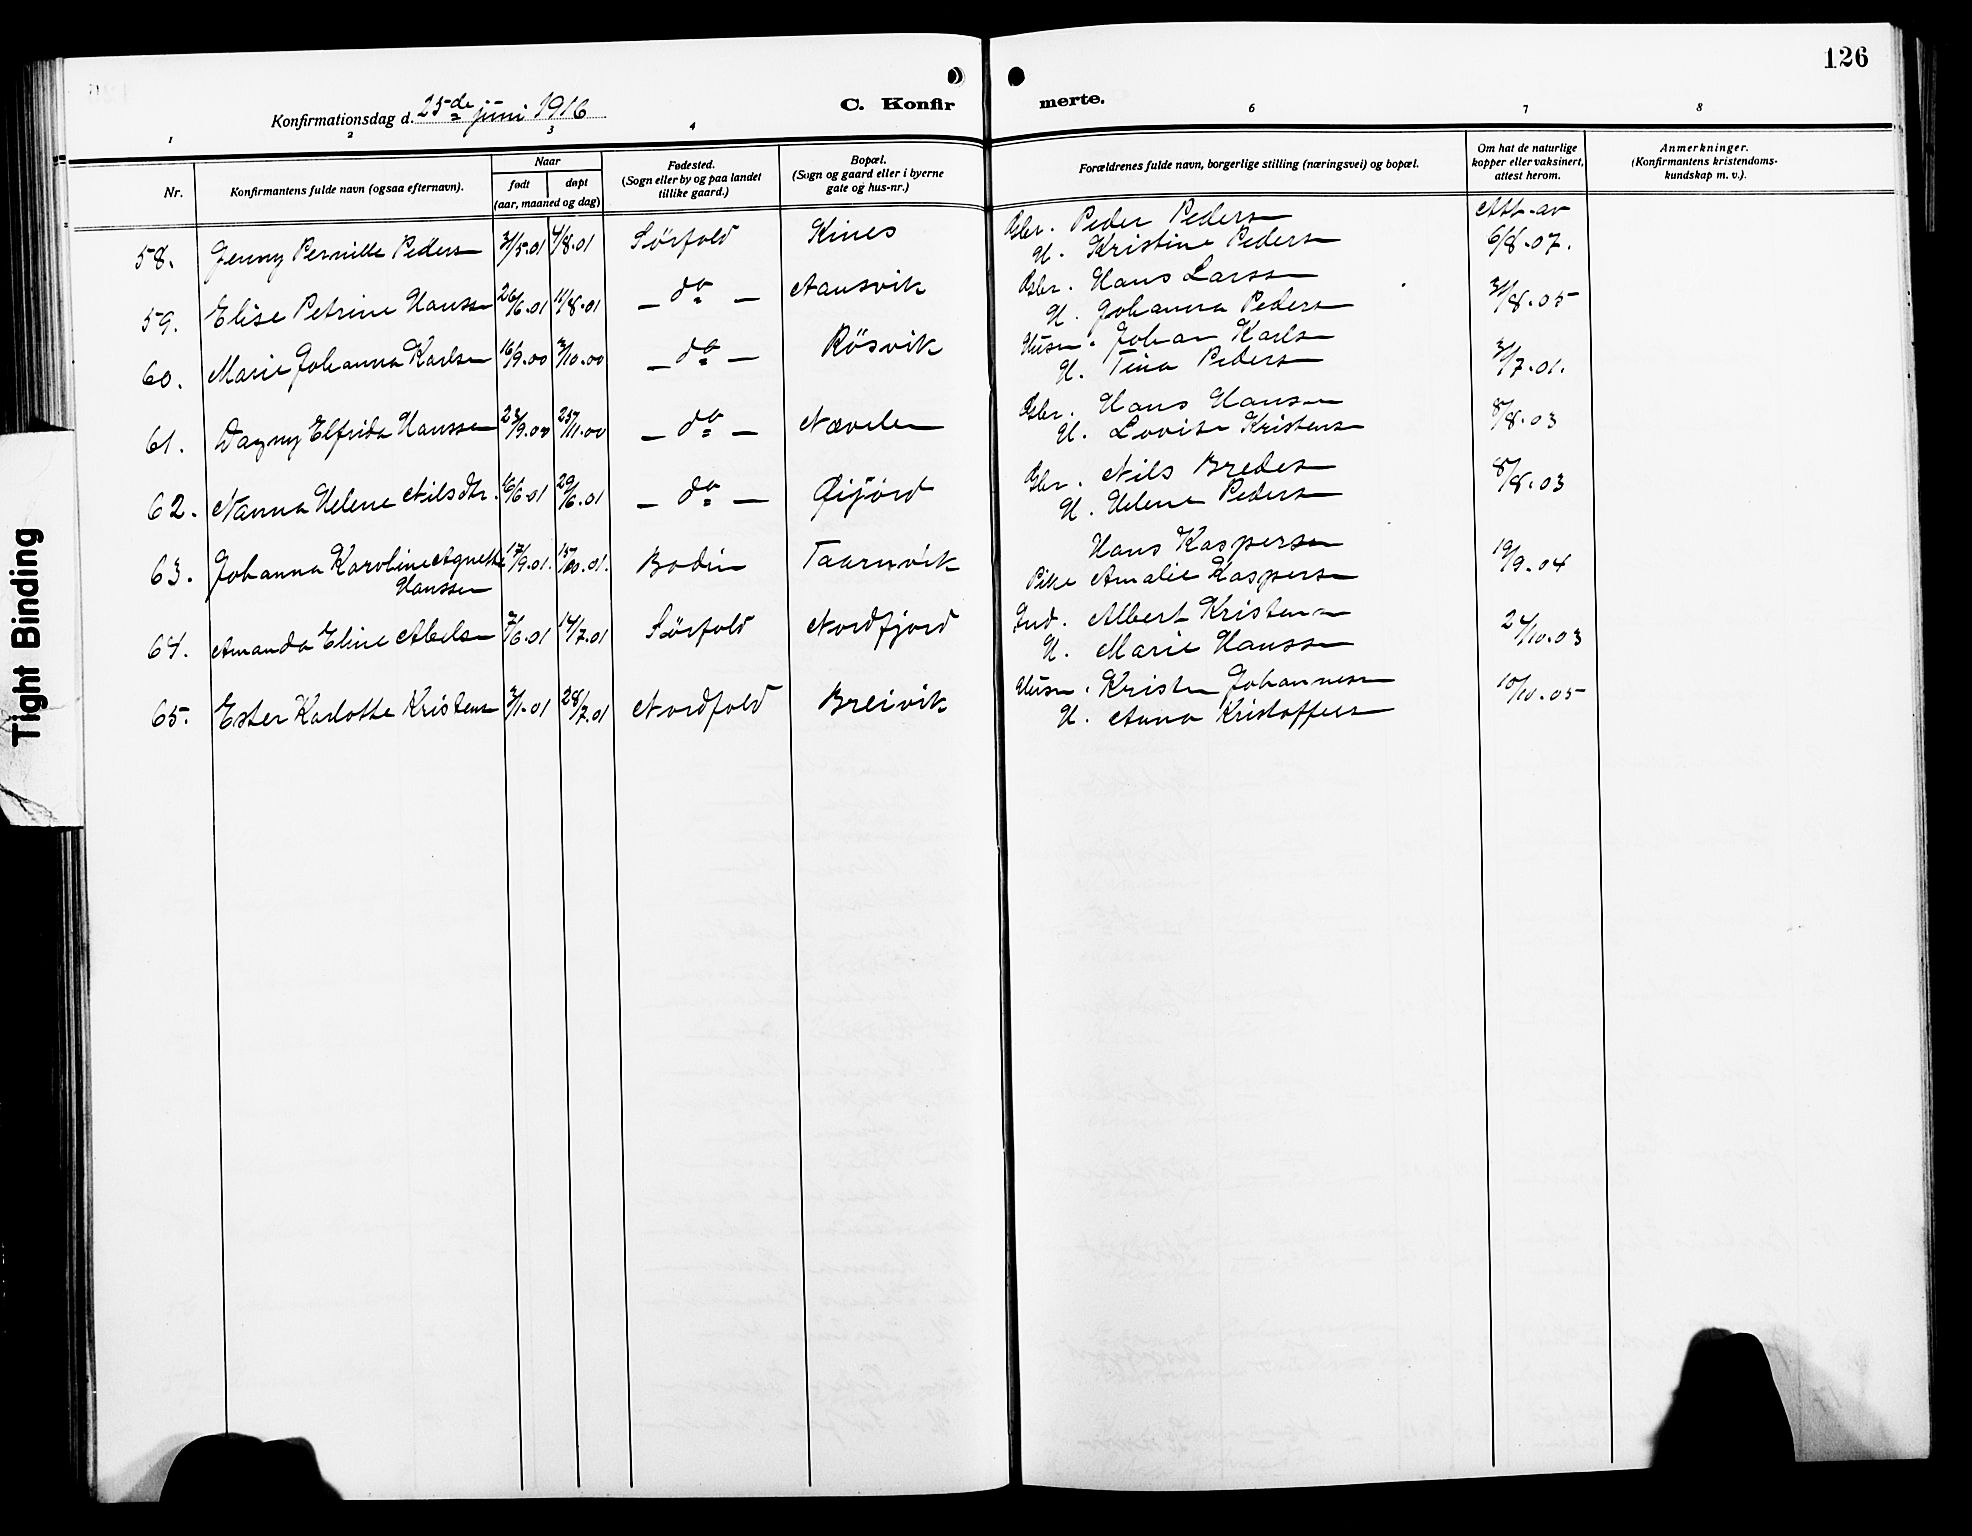 126
Konfirmationsdag d. 25de juni 1916
C. Konfir merte.
1 2 3 4 6 7 8
Nr.
Konfirmantens fulde navn (ogsaa efternavn).
Naar
født døpt
(aar, maaned og dag)
Fødested.
(Sogn eller by og paa landet
tillike gaard.)
Bopæl.
(Sogn og gaard eller i byerne
gate og hus-nr.)
Forældrenes fulde navn, borgerlige stilling (næringsvei) og bopæl.
Om hat de naturlige
kopper eller vaksinert,
attest herom.
Anmerkninger.
(Konfirmantens kristendoms-
kundskap m. v.).
58. Jenny Pernille Peders 4/8.01 Sørfold Kines Peder Peders Att. av
H. Kristine Peders 6/8-07.
59. Elise Petrine Hanss 26/6.01 11/8.01 - do - Aansvik Hans Larss
H. Johanna Peders 31/8.05
60. Marie Johanna Karls 16/9.00 - do - Røsvik Husm. Johan Karls
H. Tina Peders 31/7.01.
61. Dagny Elfrida Hanssen 23/9.00 25/11.00 - do - Nævelen Hans Hans
H. Lovise Kristens 8/8.03
62. Nanna Helene Nilsdtr. 6/6.01 29/6.01 - do - Øifjord Nils Bredes
H. Helene Peders 8/8.03
63. Johanna Karoline Agnethe 17/9.01. Bodin Taarnvik Hans Kaspersen
Hanssen Pike Amalie Kaspersen 19/9.04
64. Amanda Eline Abels 14/7.01 Sørfold Nordfjord Ind. Albert Kristen
H. Marie Hanss 24/10.03
65. Ester Karlotte Kristens 28/7.01 Nordfold Breivik Husm. Kristen Johannes
H. Anna Kristoffers 10/10.05
Tight Binding